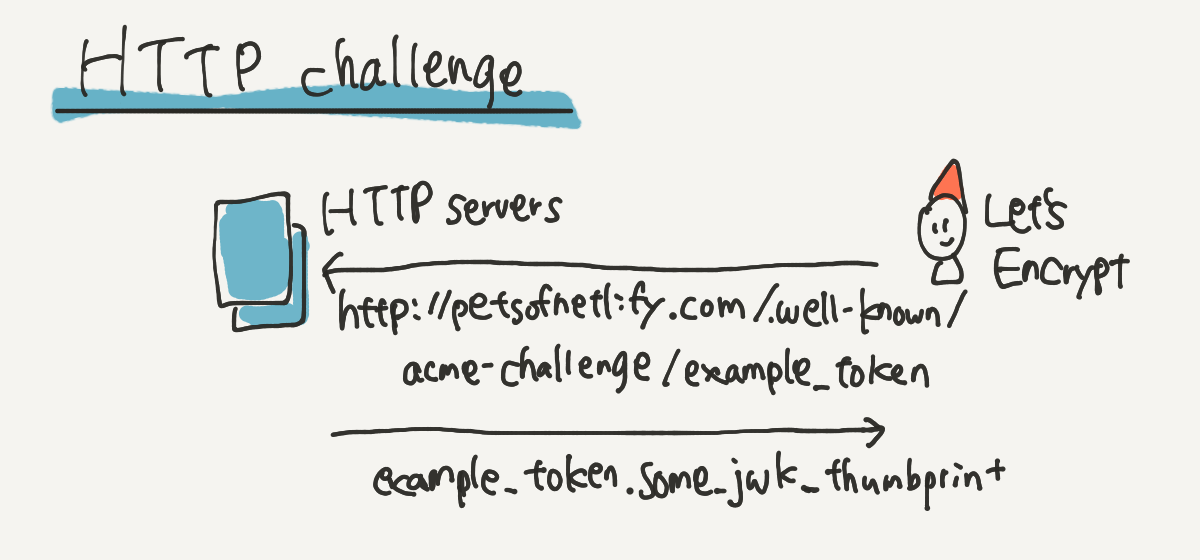 HTTP challenge
HTTP servers
Let's
Encrypt
http://petsofnetlify.com/.well-known/
acme-challenge/example_token
example_token.some_jwk_thumbprint